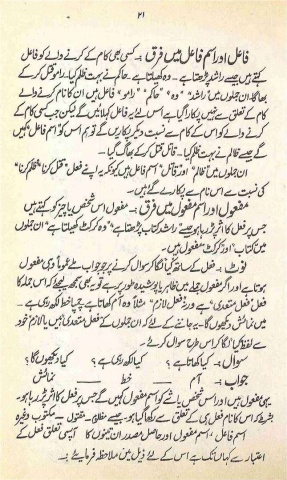 ۲۱
فاعل اور اسم فاعل میں فرق :- کسی بھی کام کے کرنے والے کو فاعل
کہتے ہیں جیسے راشد پڑھتا ہے۔ وہ کھیلتا ہے۔ حاکم نے بہت ظلم کیا۔ رامو قتل کر کے
بھاگا۔ ان جملوں میں "راشد" "وہ" "حاکم" "رامو" فاعل ہیں ان کا نام کرنے والے
کام کے تعلق سے نہیں پکارا گیا ہے اس لیے یہ فاعل کہلائیں گے لیکن جب کسی کام کے
کرنے والے کو اس کے کام سے نسبت دیکر پکاریں گے تو ہم اس کو اسم فاعل کہیں گے
جیسے ظالم نے بہت ظلم کیا۔ قاتل قتل کر کے بھاگ گیا۔
ان جملوں میں "ظالم" اور "قاتل" اسم فاعل ہیں کیونکہ یہ اپنے فعل "قتل کرنا" "ظلم کرنا"
کی نسبت سے اس نام سے پکارے گئے ہیں۔
مفعول اور اسم مفعول میں فرق :- مفعول اس شخص یا چیز کو کہتے ہیں
جس پر فعل کا اثر پڑ رہا ہو جیسے راشد کتاب پڑھتا ہے "وہ کرکٹ کھیلتا ہے" ان جملوں
میں "کتاب" اور "کرکٹ" مفعول ہیں۔
نوٹ :- فعل کے ساتھ کیا لگا کر سوال کرنے پر جو جواب ملے عموماً وہی مفعول
ہوتا ہے اور اگر مفعول جملے میں ظاہر یا پوشیدہ طور پر ہے تو یہ بھی سمجھ لیجئے کہ اس جملہ کا
فعل "فعل متعدی" ہے ورنہ "فعل لازم" مثلاً وہ آم کھاتا ہے چمپا خط لکھ رہی ہے۔
میں نمائش دیکھوں گا۔ یہ جاننے کے لئے کہ ان جملوں کے فعل متعدی ہیں یا لازم خود
سے لفظ کیا لگا کر اس طرح سوال کرئیے۔
سوال :- کیا کھاتا ہے؟ کیا لکھ رہی ہے؟ کیا دیکھوں گا؟
جواب :- آم خط نمائش
یہی مفعول ہیں اور اس شخص یا شے کو اسم مفعول کہیں گے جس پر فعل کا اثر پڑ رہا ہو۔
بشرطیکہ اس کا نام فعل ہی کے تعلق سے رکھا گیا ہو۔ جیسے مظلوم۔ مقتول۔ مکتوب وغیرہ
اسم فاعل، اسم مفعول اور حاصل مصدر ان تینوں کا آپسی تعلق فعل کے
اعتبار سے کہاں تک ہے اس کے لئے ذیل میں ملاحظہ فرمائیے :-